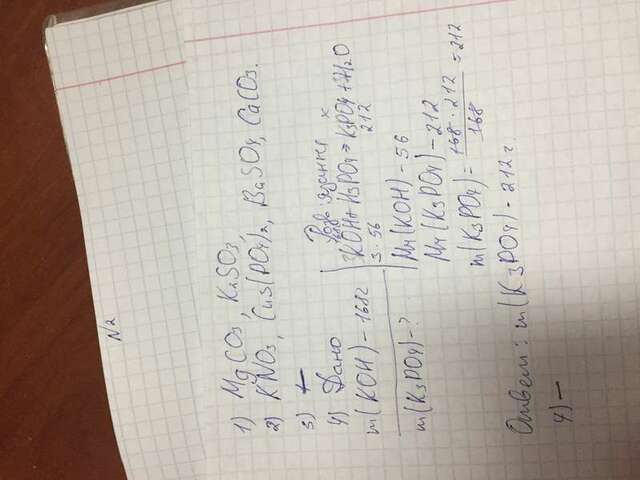 N2
1) MgCO3, K2SO3,
2) KNO3, Cu3(PO4)2, BaSO4, CaCO3.
3) +
4) Дано
m(KOH) - 168г
m(K3PO4) - ?
Розв'язання
168 x
3KOH + H3PO4 → K3PO4 + 3H2O
3·56 212
Mr(KOH) - 56
Mr(K3PO4) - 212
m(K3PO4) = 168 · 212 / 168 = 212
Ответ: m(K3PO4) - 212 г.
4) —